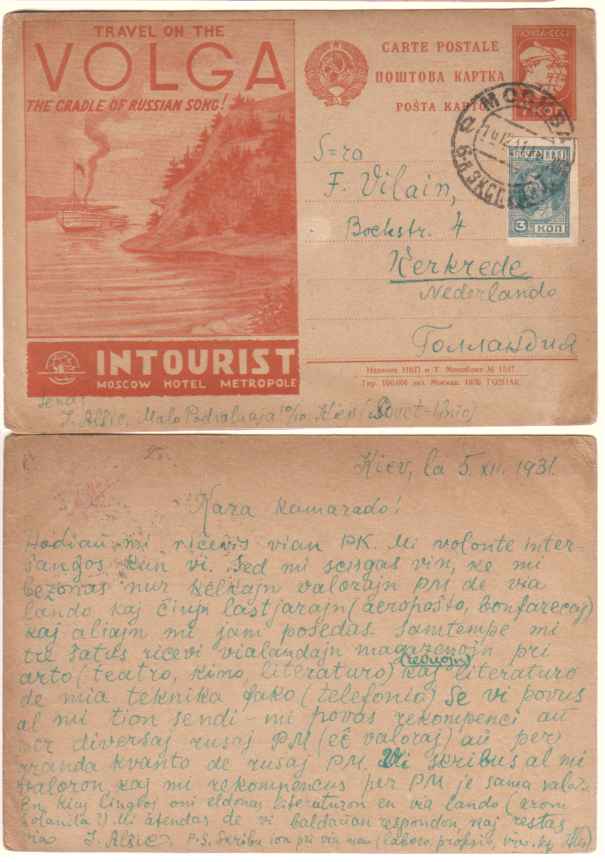 TRAVEL ON THE
VOLGA
THE CRADLE OF RUSSIAN SONG!
INTOURIST
MOSCOW HOTEL METROPOLE
CARTE POSTALE
ПОШТОВА КАРТКА
POŜTA KARTO
ПОЧТА СССР
КОП
МОСКВА
3 КОП
S-ro
F. Vilain,
Bockstr. 4
Kerkrede
Nederlando
Голландия
Издание НКП и Т.
Москва. 1930 ГОЗНАК
J. Alŝic, Malo Podvalnaja Kiev (Sovet-Unio)
Kiev, la 5. XII. 1931.
Kara kamarado!
Hodiaŭ mi ricevis vian PK. Mi volonte inter-
ŝanĝos kun vi. Sed mi sciigas vin, ke mi
bezonas nur kelkajn valorajn PM de via
lando kaj ĉiujn lastjarajn (aeropoŝto, bonfarecaj)
kaj aliajn mi jam posedas. Samtempe mi
tre ŝatus ricevi vialandajn magazenojn pri
(revuojn)
arto (teatro, kino, literaturo) kaj literaturo
de mia teknika fako (telefonio) Se vi povus
al mi tion sendi - mi povas rekompenci aŭ
per diversaj rusaj PM (eĉ valoraj) aŭ per
granda kvanto de rusaj PM. Vi skribus al mi
valoron, kaj mi rekompencus per PM je sama valoro.
En kiuj lingvoj oni eldonas literaturon en via lando (krom
holanda?) Mi atendas de vi baldaŭan respondon kaj restas
via J. Alŝic P.S. Skribu ion pri via vivo (laboro, profesio,